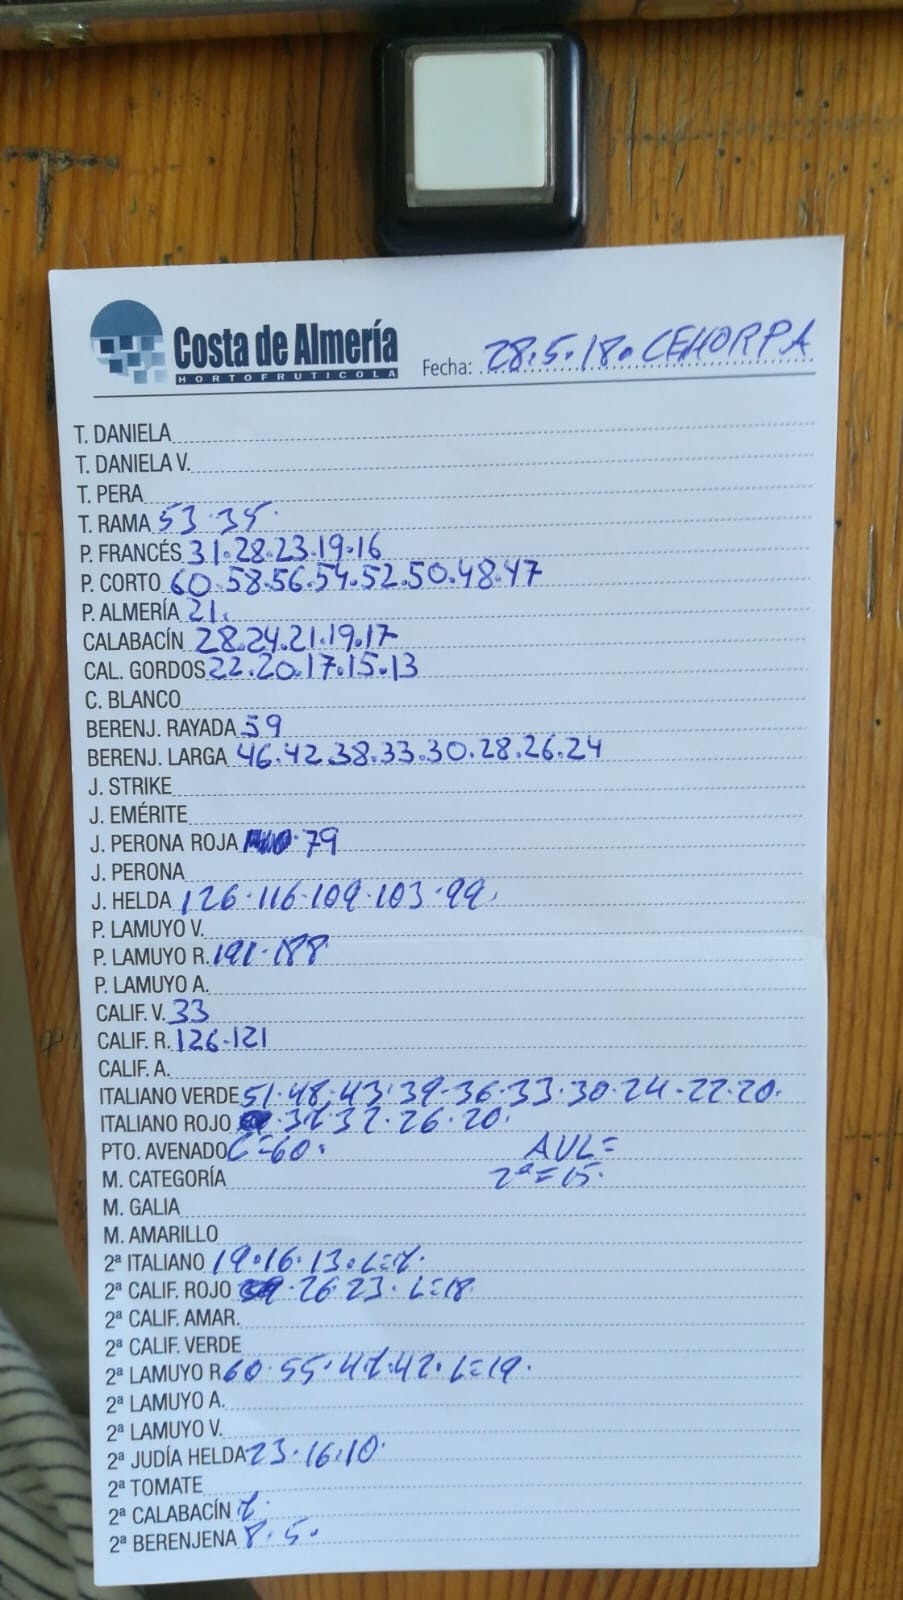 Costa de Almería
HORTOFRUTICOLA
Fecha: 28.5.18. CEHORPA
T. DANIELA
T. DANIELA V.
T. PERA
T. RAMA 53.35.
P. FRANCÉS 31.28.23.19.16
P. CORTO 60.58.56.54.52.50.48.47
P. ALMERÍA 21.
CALABACÍN 28.24.21.19.17
CAL. GORDOS 22.20.17.15.13
C. BLANCO
BERENJ. RAYADA 59
BERENJ. LARGA 46.42.38.33.30.28.26.24
J. STRIKE
J. EMÉRITE
J. PERONA ROJA 79
J. PERONA
J. HELDA 126.116.109.103.99
P. LAMUYO V.
P. LAMUYO R. 191.188
P. LAMUYO A.
CALIF. V. 33
CALIF. R. 126.121
CALIF. A.
ITALIANO VERDE 51.48.43.39-36.33.30.24-22.20.
ITALIANO ROJO 37.32.26.20.
PTO. AVENADO C=60. AVL=
M. CATEGORÍA 2ª=15.
M. GALIA
M. AMARILLO
2ª ITALIANO 19.16.13.L=7.
2ª CALIF. ROJO 26.23. L=18.
2ª CALIF. AMAR.
2ª CALIF. VERDE
2ª LAMUYO R. 60.55.47.42. L=19.
2ª LAMUYO A.
2ª LAMUYO V.
2ª JUDÍA HELDA 23.16.10.
2ª TOMATE
2ª CALABACÍN 7.
2ª BERENJENA 8.5.